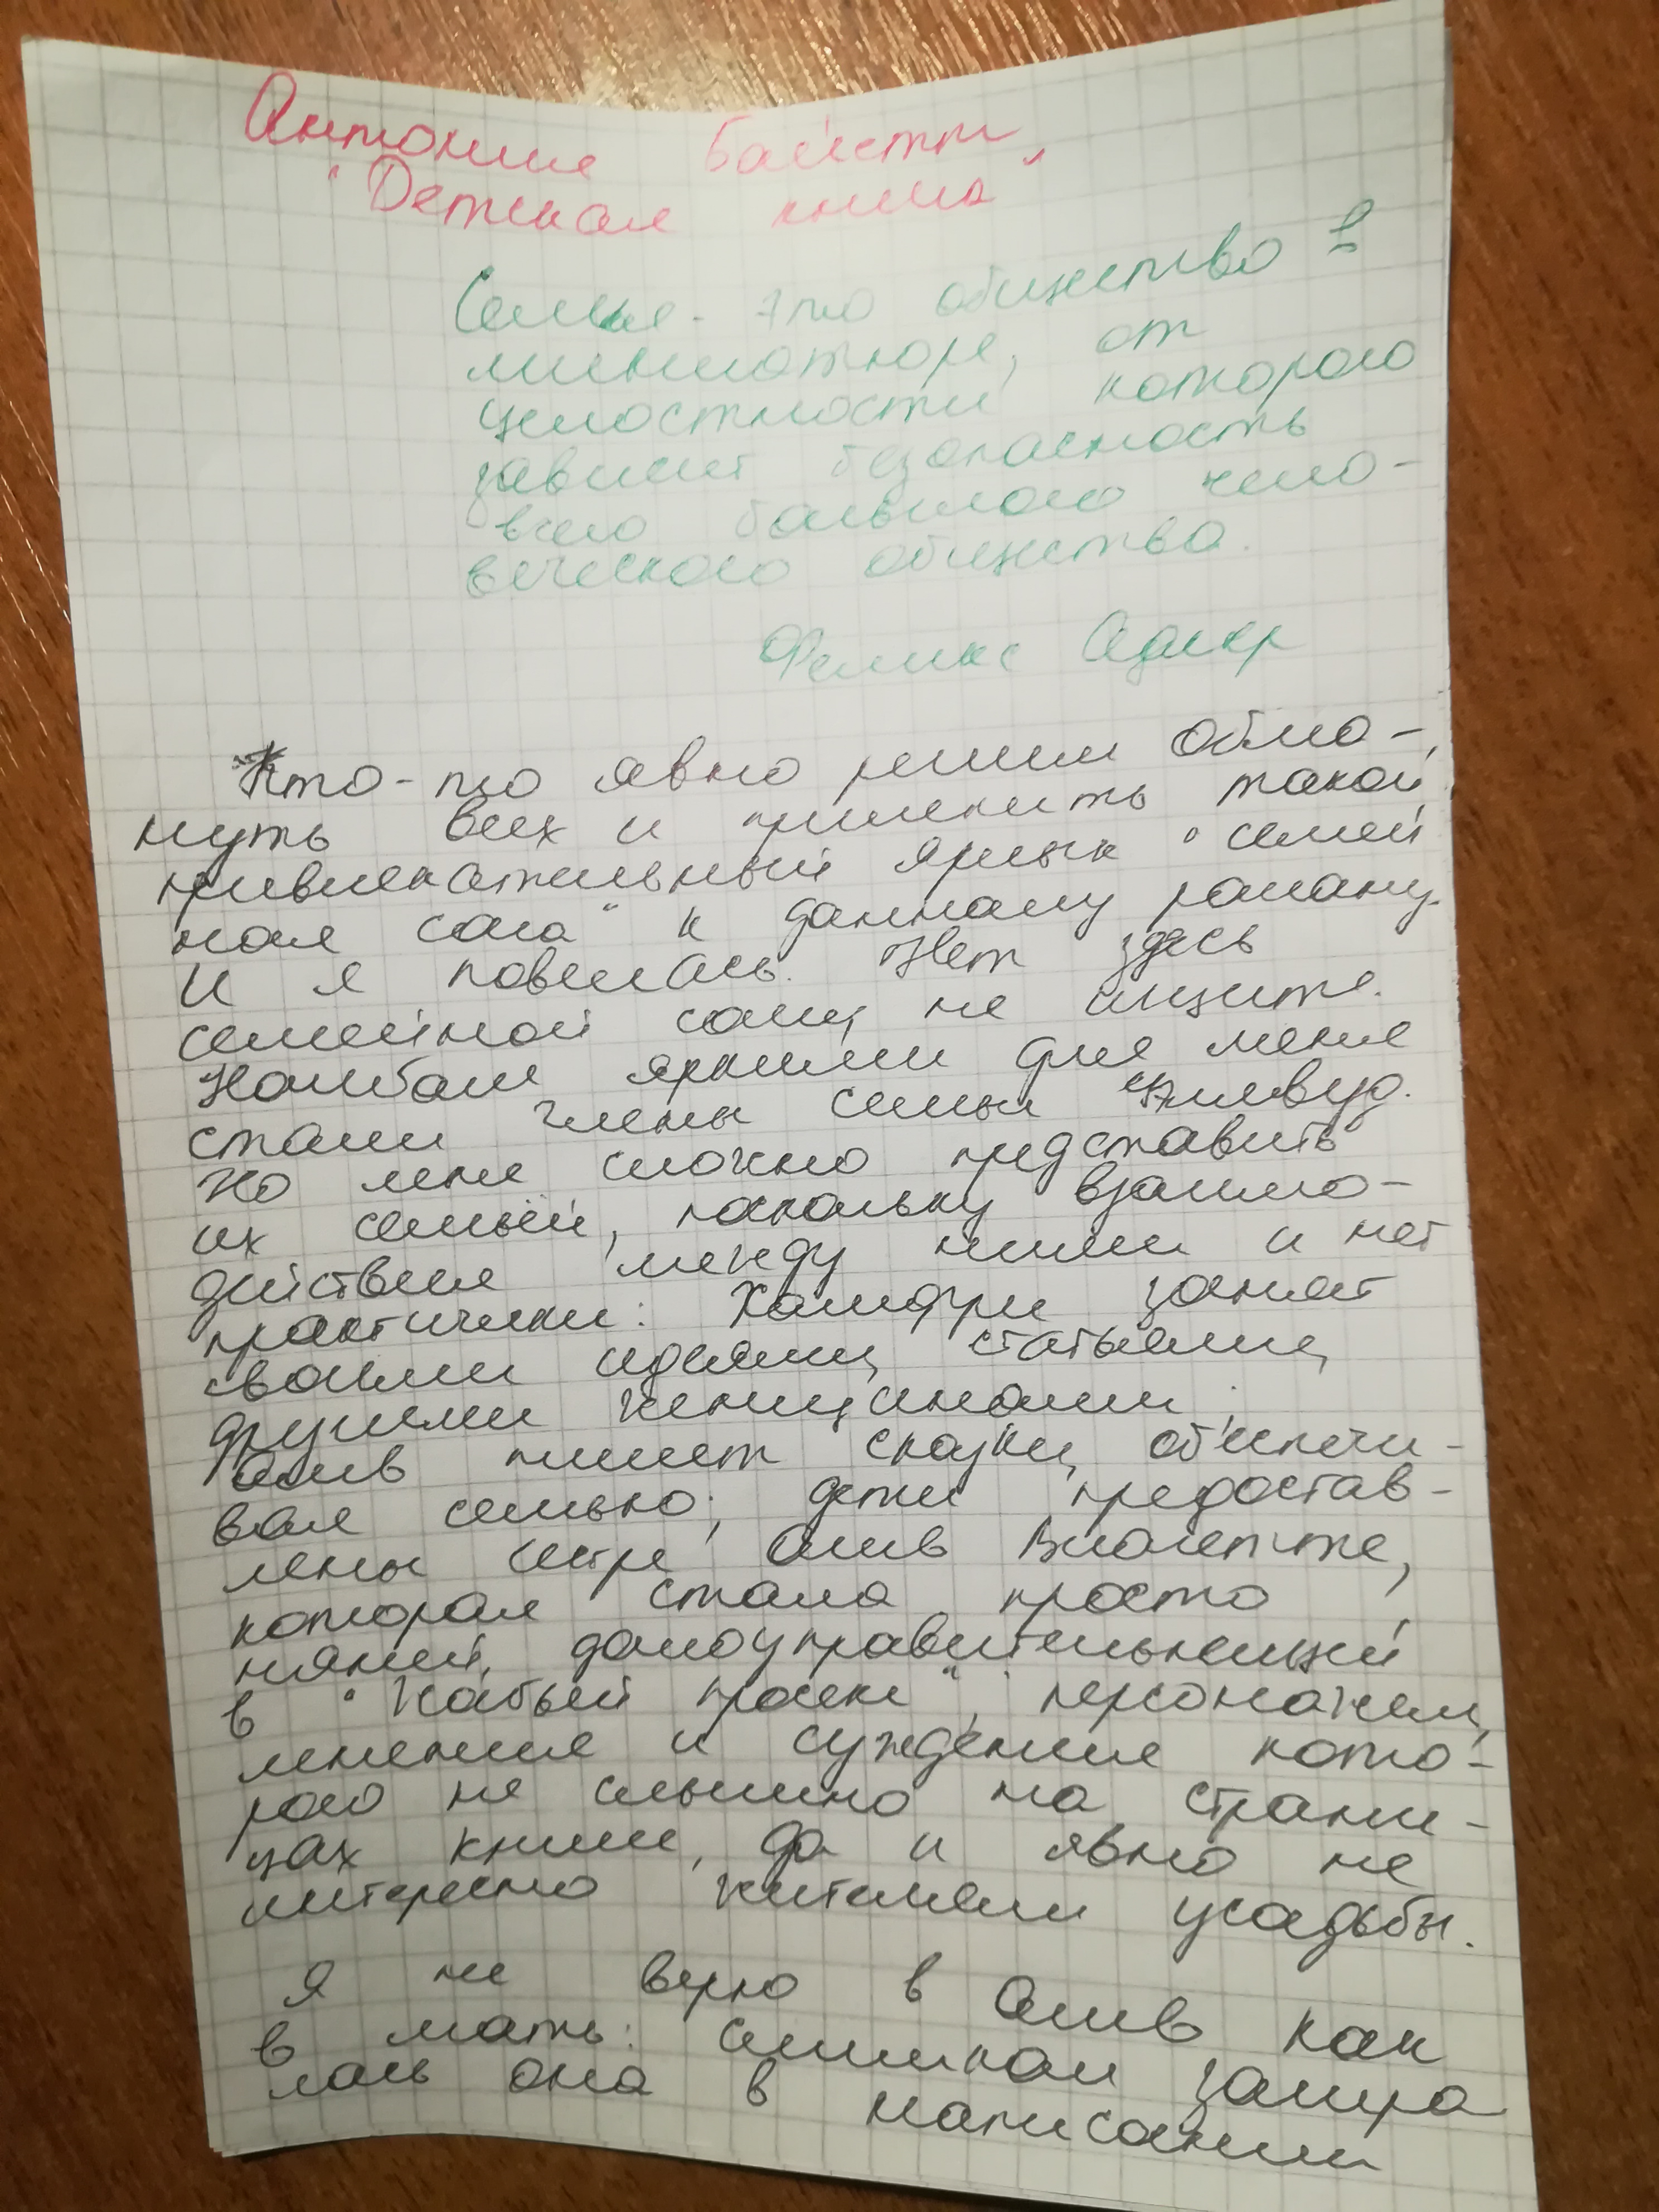 Антония Байетт
"Детская книга"
Семья - это общество в
миниатюре, от
целостности которого
зависит безопасность
всего большого чело-
веческого общества.
Феликс Адлер
Кто-то явно решил обма-
нуть всех и прилепить такой
привлекательный ярлык "семей
ная сага" к данному роману.
И я повелась. Нет здесь
семейной саги, не ищите.
Наиболее яркими для меня
стали члены семьи Уэллвуд.
Но мне сложно представить
их семьёй, поскольку взаимо-
действия между ними и нет
практически: Хамфри занят
своими идеями, статьями,
другими женщинами;
Олив пишет сказки, обеспечи-
вая семью; дети предостав-
лены сестре Олив Виолетте,
которая стала просто
няней, домоуправительницей
в "Жабьей просеке", персонажем,
мнение и суждение кото-
рого не слышно на страни-
цах книги, да и явно не
интересно жителям усадьбы.
Я не верю в Олив как
в мать: слишком заигра
лась она в написании